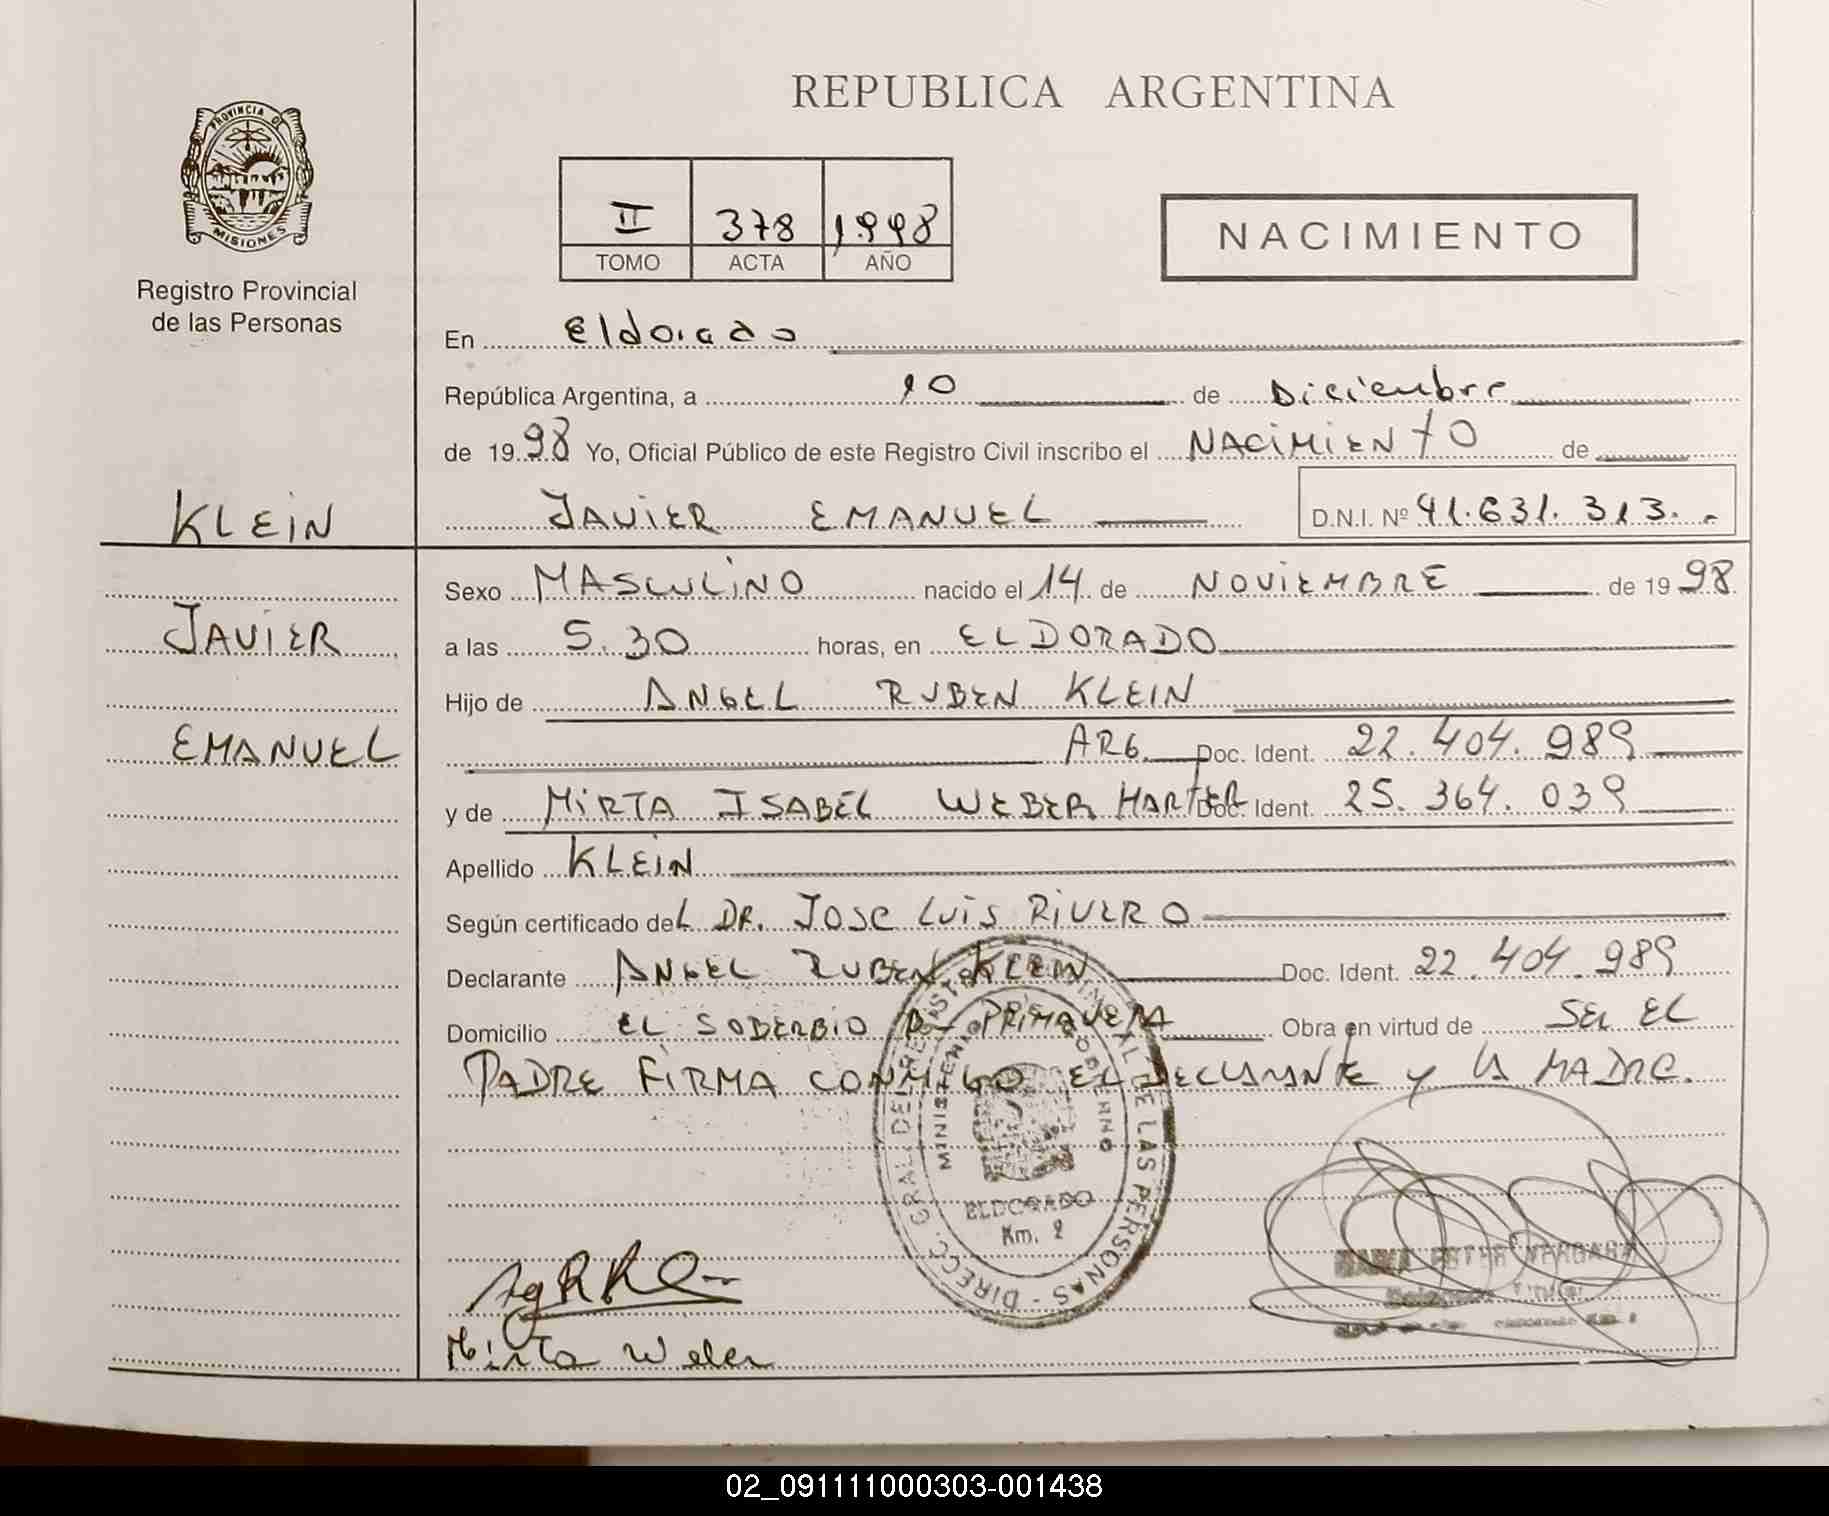 REPUBLICA ARGENTINA
PROVINCIA DE
MISIONES
Registro Provincial
de las Personas
II 378 1998
TOMO ACTA AÑO
NACIMIENTO
En Eldorado
República Argentina, a 10 de Diciembre
de 1998 Yo, Oficial Público de este Registro Civil inscribo el NACIMIENTO de
KLEIN
JAVIER EMANUEL D.N.I. Nº 41.631.313.-
Sexo MASCULINO nacido el 14 de NOVIEMBRE de 1998
JAVIER
a las 5.30 horas, en ELDORADO
Hijo de ANGEL RUBEN KLEIN
EMANUEL
ARG. Doc. Ident. 22.404.989
y de MIRTA ISABEL WEBER HARTER Doc. Ident. 25.364.039
Apellido KLEIN
Según certificado del DR. JOSE LUIS RIVERO
Declarante ANGEL RUBEN KLEIN Doc. Ident. 22.404.989
Domicilio EL SOBERBIO PRIMAVERA Obra en virtud de SER EL
PADRE FIRMA CONMIGO EL DECLARANTE y LA MADRE.
DIRECC. GRAL. DEL REGISTRO PROVINCIAL DE LAS PERSONAS
MINISTERIO DE GOBIERNO
ELDORADO
Km. 2
ESTER VERGARA
Mirta Weber
02_091111000303-001438